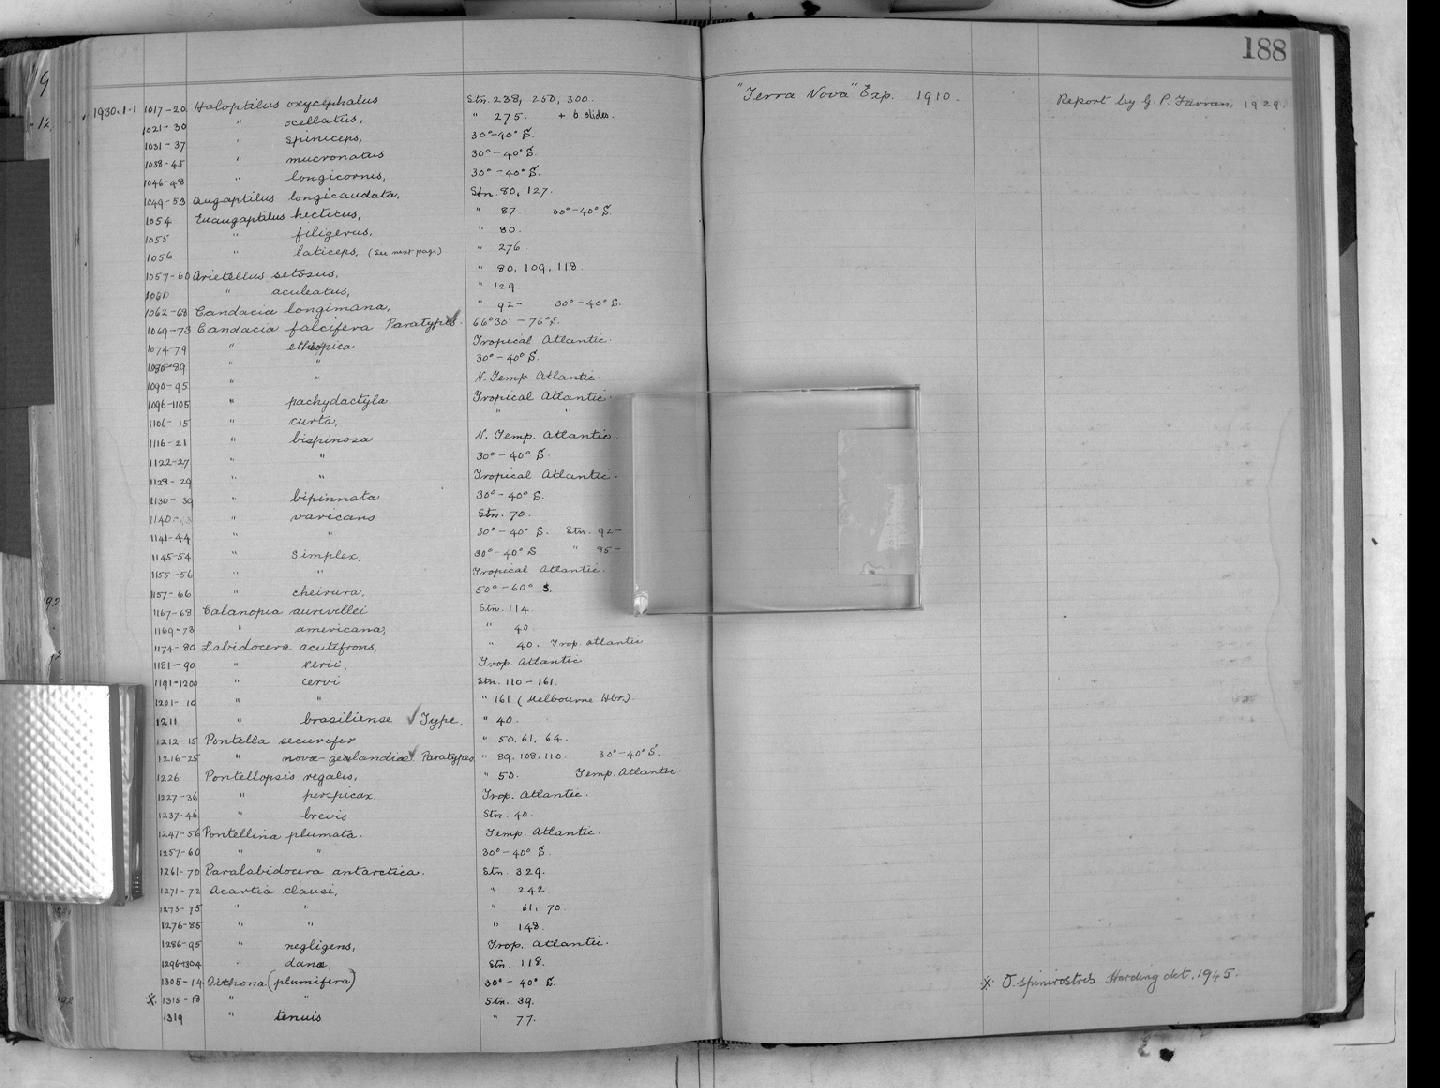 188
1930.1.1 1017-20 Haloptilus oxycephalus Stn. 238, 250, 300. "Terra Nova" Exp. 1910. Report by G. P. Farran, 1929.
1021-30 " ocellatus, " 275. + 6 slides.
1031-37 " spiniceps, 30°-40° S.
1038-45 " mucronatus 30°-40° S.
1046-48 " longicornis, 30°-40° S.
1049-53 Augaptilus longicaudata, Stn. 80, 127.
1054 Euaugaptilus hecticus, " 87. 30°-40° S.
1055 " filigerus, " 80.
1056 " laticeps, (See next page) " 276
1057-60 Arietellus setosus, " 80, 109, 118.
" aculeatus, " 129
1062-68 Candacia longimana, " 92- 30°-40° S.
1069-73 Candacia falcifera Paratypes. 66°30'-76° S.
1074-79 " ethiopica Tropical Atlantic.
1080-89 " " 30°-40° S.
1090-95 " " N. Temp Atlantic
1096-1105 " pachydactyla Tropical Atlantic.
1106-15 " curta, " "
1116-21 " bispinosa N. Temp. Atlantic.
1122-27 " " 30°-40° S
1128-29 " " Tropical Atlantic.
1130-39 " bipinnata 30°-40° S.
1140 " varicans Stn. 70.
1141-44 " " 30°-40° S. Stn. 92-
1145-54 " Simplex, 30°-40° S " 95-
1155-56 " " Tropical Atlantic.
1157-66 " cheirura, 50°-60° S.
1167-68 Calanopia aurivillei Stn. 114.
1169-73 " americana, " 40
1174-80 Labidocera acutifrons, " 40. Trop. Atlantic
1181-90 " nerii, Trop. Atlantic
1191-1200 " cervi Stn. 110-161.
1201-10 " " " 161 (Melbourne Hbr.)
1211 " brasiliense ✓ Type. " 40.
1212-15 Pontella securifer " 50, 61, 64.
1216-25 " novæ-zealandiæ ✓ Paratypes " 89, 108, 110. 30°-40° S.
1226 Pontellopsis regalis, " 50. Temp. Atlantic
1227-36 " perspicax Trop. Atlantic.
1237-46 " brevis Stn. 40.
1247-56 Pontellina plumata. Temp. Atlantic.
1257-60 " " 30°-40° S.
1261-70 Paralabidocera antarctica. Stn. 329.
1271-72 Acartia clausi, " 242.
1273-75 " " " 61, 70.
1276-85 " " " 148.
1286-95 " negligens, Trop. Atlantic.
1296-1304 " danæ, Stn. 118.
1305-14 Oithona (plumifera) 30°-40° S. x O. spinirostris Harding det. 1945.
x 1315-18 " " Stn. 39.
1319 " tenuis " 77.